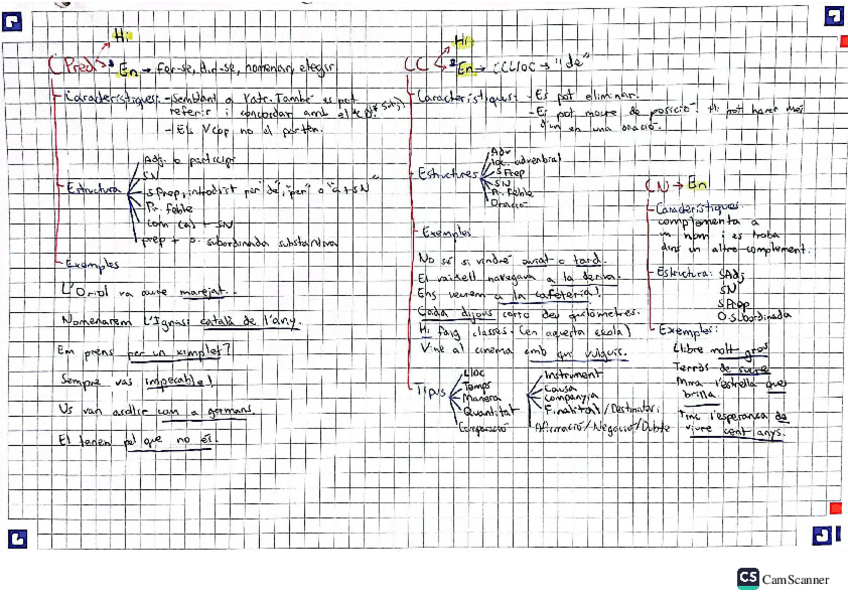 Hi
CPred
En → fer-se, dir-se, nomenar, elegir
Característiques: - Semblant a l'atr. També es pot
referir i concordar amb el CD.
- Els Vcop no el porten.
Estructura
Adj. o participi
SN
SPrep, introduït per "de", "per" o "a + SN"
Pr. feble
com (a) + SN
prep + o. subordinada substantiva
Exemples
L'Oriol va caure marejat.
Nomenarem l'Ignasi català de l'any.
Em prens per un ximplet?
Sempre vas impecable!
Us van acollir com a germans.
El tenen pel que no és.
Hi
CC
En → CCLloc → "de"
Característiques: - Es pot eliminar.
- Es pot moure de posició. Hi pot haver més
d'un en una oració.
Estructures
Adv
loc. adverbial
SPrep
SN
Pr. feble
Oració
Exemples
No sé si vindré aviat o tard.
El vaixell navegava a la deriva.
Ens veurem a la cafeteria!
Cada dijous corro deu quilòmetres.
Hi faig classes. (en aquesta escola)
Vine al cinema amb qui vulguis.
Tipus
Lloc
Temps
Manera
Quantitat
Comparació
Instrument
Causa
Companyia
Finalitat / Destinatari
Afirmació / Negació / Dubte
CN → En
Característiques
complementa a
un nom i es troba
dins un altre complement.
Estructura: SAdj
SN
SPrep
O. Subordinada
Exemples:
Llibre molt gros
Terròs de sucre
Mira l'estrella que
brilla
Tinc l'esperança de
viure cent anys.
CS CamScanner